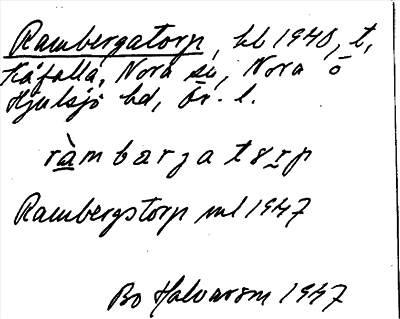 Rambergatorp, hb 1940, t,
Kåfalla, Nora sn, Nora o
Hjulsjö bd, Ör. l.
ràmbargatorp
Rambergstorp ml 1947
Bo Halvarsson 1947